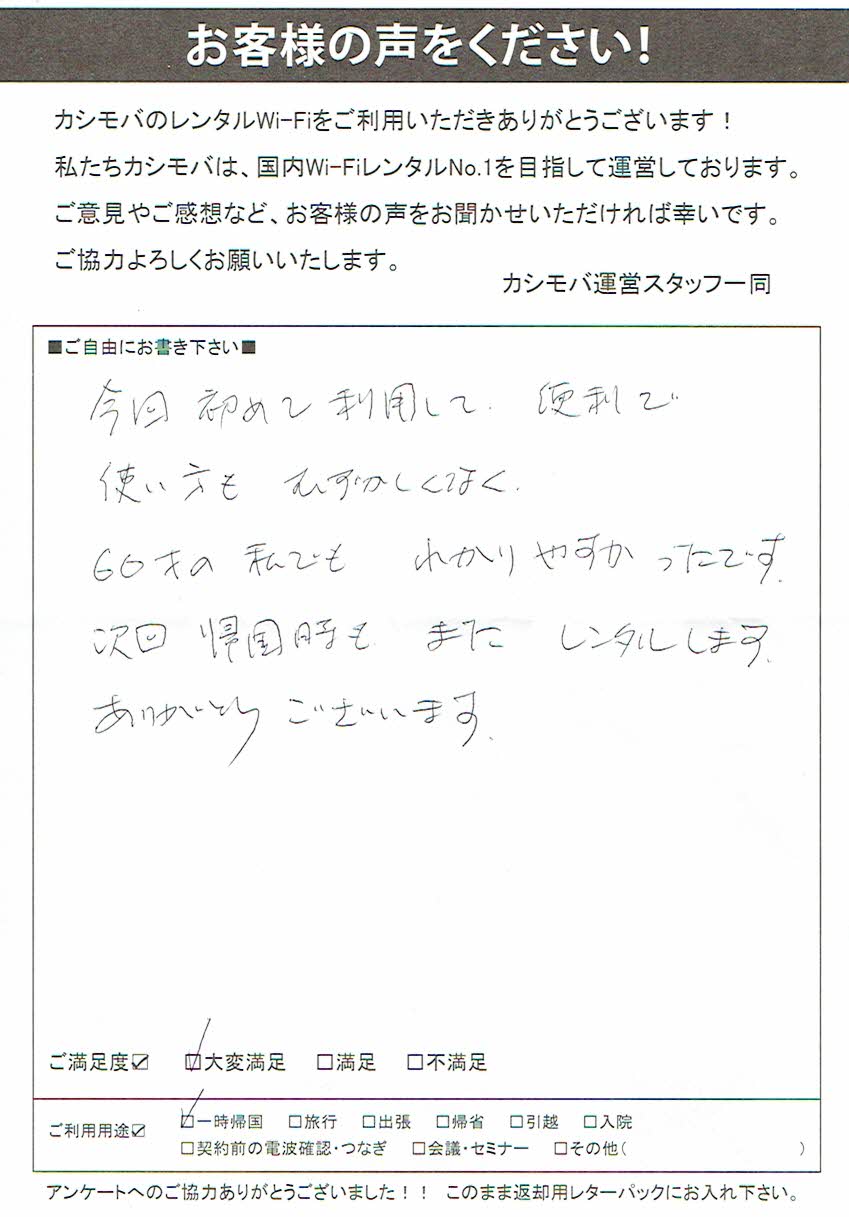 お客様の声をください!
カシモバのレンタルWi-Fiをご利用いただきありがとうございます！
私たちカシモバは、国内Wi-FiレンタルNo.1を目指して運営しております。
ご意見やご感想など、お客様の声をお聞かせいただければ幸いです。
ご協力よろしくお願いいたします。
カシモバ運営スタッフ一同
■ご自由にお書き下さい■
今回 初めて利用して. 便利で
使い方も むずかしくなく.
60才の 私でも わかりやすかったです.
次回 帰国時も また レンタルします.
ありがとう ございます.
ご満足度☑ ☑大変満足 □満足 □不満足
ご利用用途☑ ☑一時帰国 □旅行 □出張 □帰省 □引越 □入院
□契約前の電波確認・つなぎ □会議・セミナー □その他( )
アンケートへのご協力ありがとうございました！！ このまま返却用レターパックにお入れ下さい。